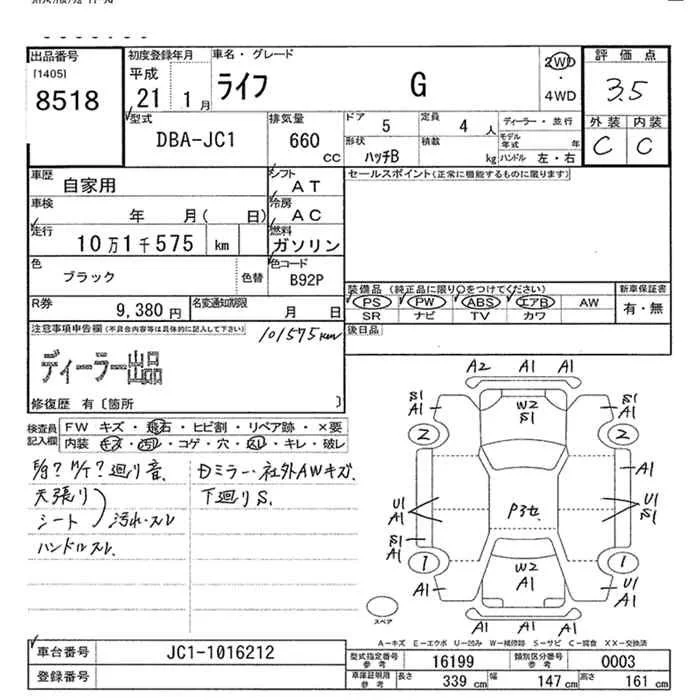 出品番号
[1405]
8518
初度登録年月
平成
21 1 月
車名・グレード
ライフ G
2WD
・
4WD
評価点
3.5
外装 内装
C C
型式
DBA-JC1
排気量
660
CC
ドア 5
定員 4 人
形状 ハッチB
積載 kg
ディーラー・並行
モデル年式 年
ハンドル 左・右
車歴 自家用
シフト AT
車検 年 月( 日)
冷房 AC
走行 10万1千575 km
燃料 ガソリン
色 ブラック 色替
色コード B92P
R券 9,380 円
名変通知期限 月 日
セールスポイント(正常に機能するものに限ります)
装備品(純正品に限り○をつけてください)
PS PW ABS エアB AW
SR ナビ TV カワ
新車保証書
有・無
後日品
注意事項申告欄(不具合内容等は具体的に記入して下さい)
101575km
ディーラー出品
修復歴 有〔箇所 〕
検査員記入欄
FW キズ・飛石・ヒビ割・リペア跡・×要
内装・キズ・汚レ・コゲ・穴・スレ・キレ・破レ
廻り音.
天張り
シート
汚れ・スレ
ハンドルスレ.
Dミラー・社外AWキズ.
下廻りS.
A2 A1 A1
S1
A1
W2
S1
S1
A1
2
2
A1
U1
A1
P3セ
U1
S1
S1
A1
1
1
W2
A1
A1
U1
A1
A1 A1 A1
スペア
A-キズ E-エクボ U-凹み W-補修跡 S-サビ C-腐食 XX-交換済
車台番号 JC1-1016212
登録番号
型式指定番号 参考 16199
類別区分番号 参考 0003
車庫証明用 参考 長さ 339 cm 幅 147 cm 高さ 161 cm